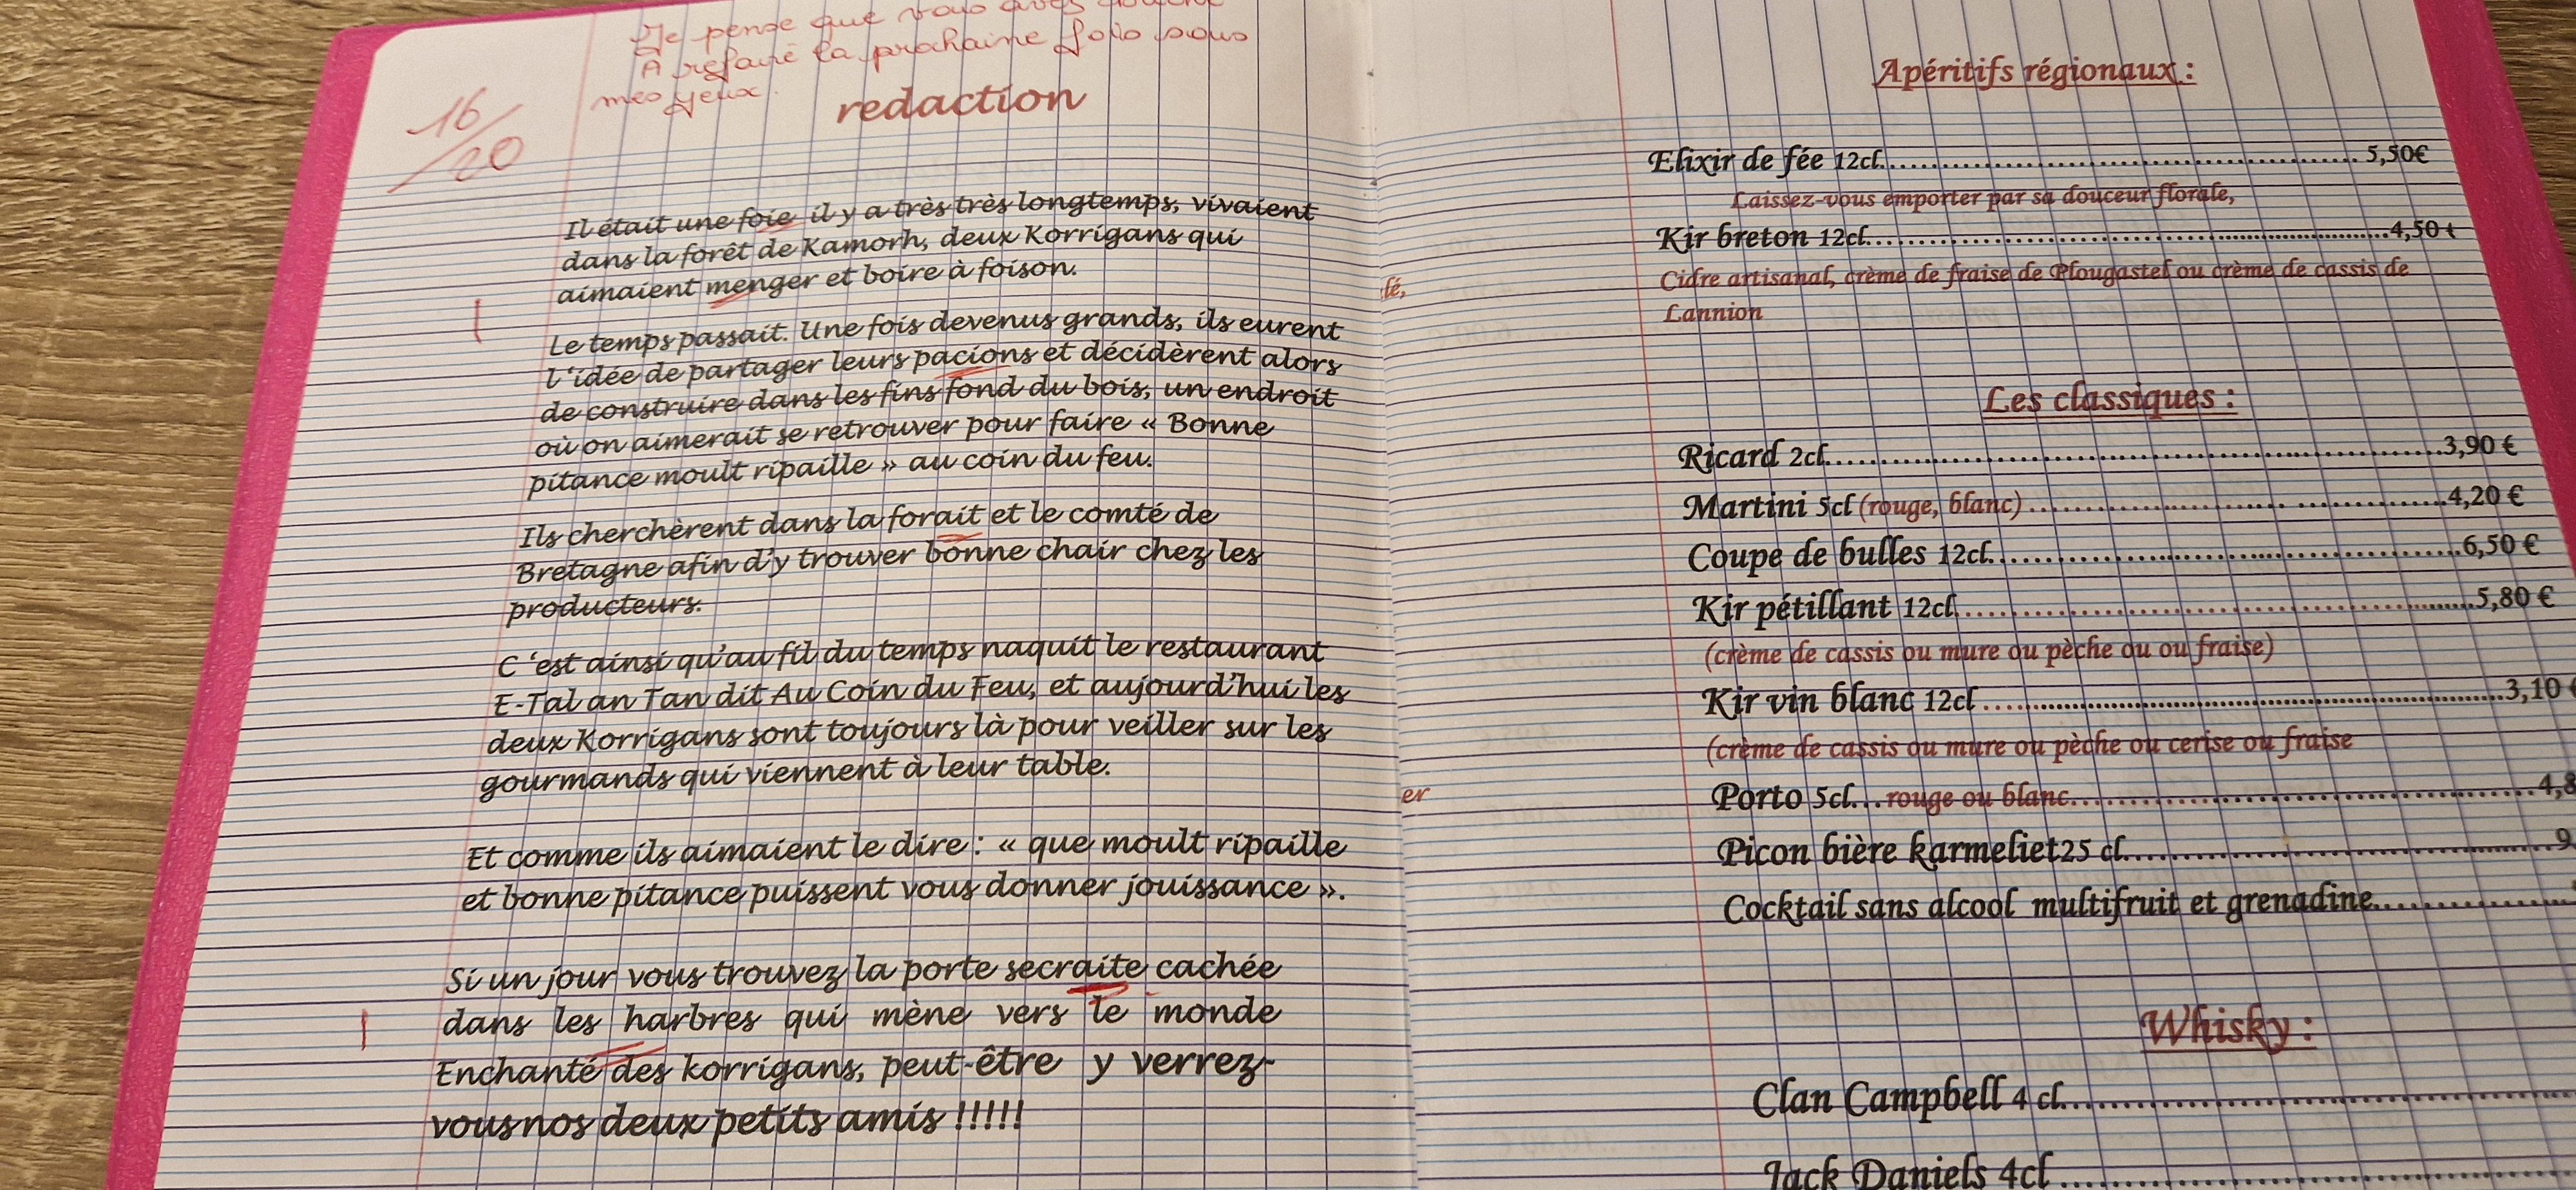 Je pense que vous avez
A refaire la prochaine fois sous
mes yeux.
16/20
redaction
Il était une foie il y a très très longtemps, vivaient
dans la forêt de Kamorh, deux Korrigans qui
aimaient menger et boire à foison.
Le temps passait. Une fois devenus grands, ils eurent
l'idée de partager leurs pacions et décidèrent alors
de construire dans les fins fond du bois, un endroit
où on aimerait se retrouver pour faire « Bonne
pitance moult ripaille » au coin du feu.
Ils cherchèrent dans la forait et le comté de
Bretagne afin d'y trouver bonne chair chez les
producteurs.
C 'est ainsi qu'au fil du temps naquit le restaurant
E-Tal an Tan dit Au Coin du Feu, et aujourd'hui les
deux Korrigans sont toujours là pour veiller sur les
gourmands qui viennent à leur table.
Et comme ils aimaient le dire : « que moult ripaille
et bonne pitance puissent vous donner jouissance ».
Si un jour vous trouvez la porte secraite cachée
dans les harbres qui mène vers le monde
Enchanté des korrigans, peut-être y verrez-
vous nos deux petits amis !!!!!
lé,
er
Apéritifs régionaux :
Elixir de fée 12cl.......... 5,50€
Laissez-vous emporter par sa douceur florale,
Kir breton 12cl..........4,50 €
Cidre artisanal, crème de fraise de Plougastel ou crème de cassis de
Lannion
Les classiques :
Ricard 2cl..........3,90 €
Martini 5cl (rouge, blanc) ..........4,20 €
Coupe de bulles 12cl..........6,50 €
Kir pétillant 12cl..........5,80 €
(crème de cassis ou mure ou pèche ou ou fraise)
Kir vin blanc 12cl ..........3,10 €
(crème de cassis ou mure ou pèche ou cerise ou fraise
Porto 5cl...rouge ou blanc..........4,8
Picon bière karmeliet25 cl..........9,
Cocktail sans alcool multifruit et grenadine..........
Whisky :
Clan Campbell 4 cl..........
Jack Daniels 4cl ..........